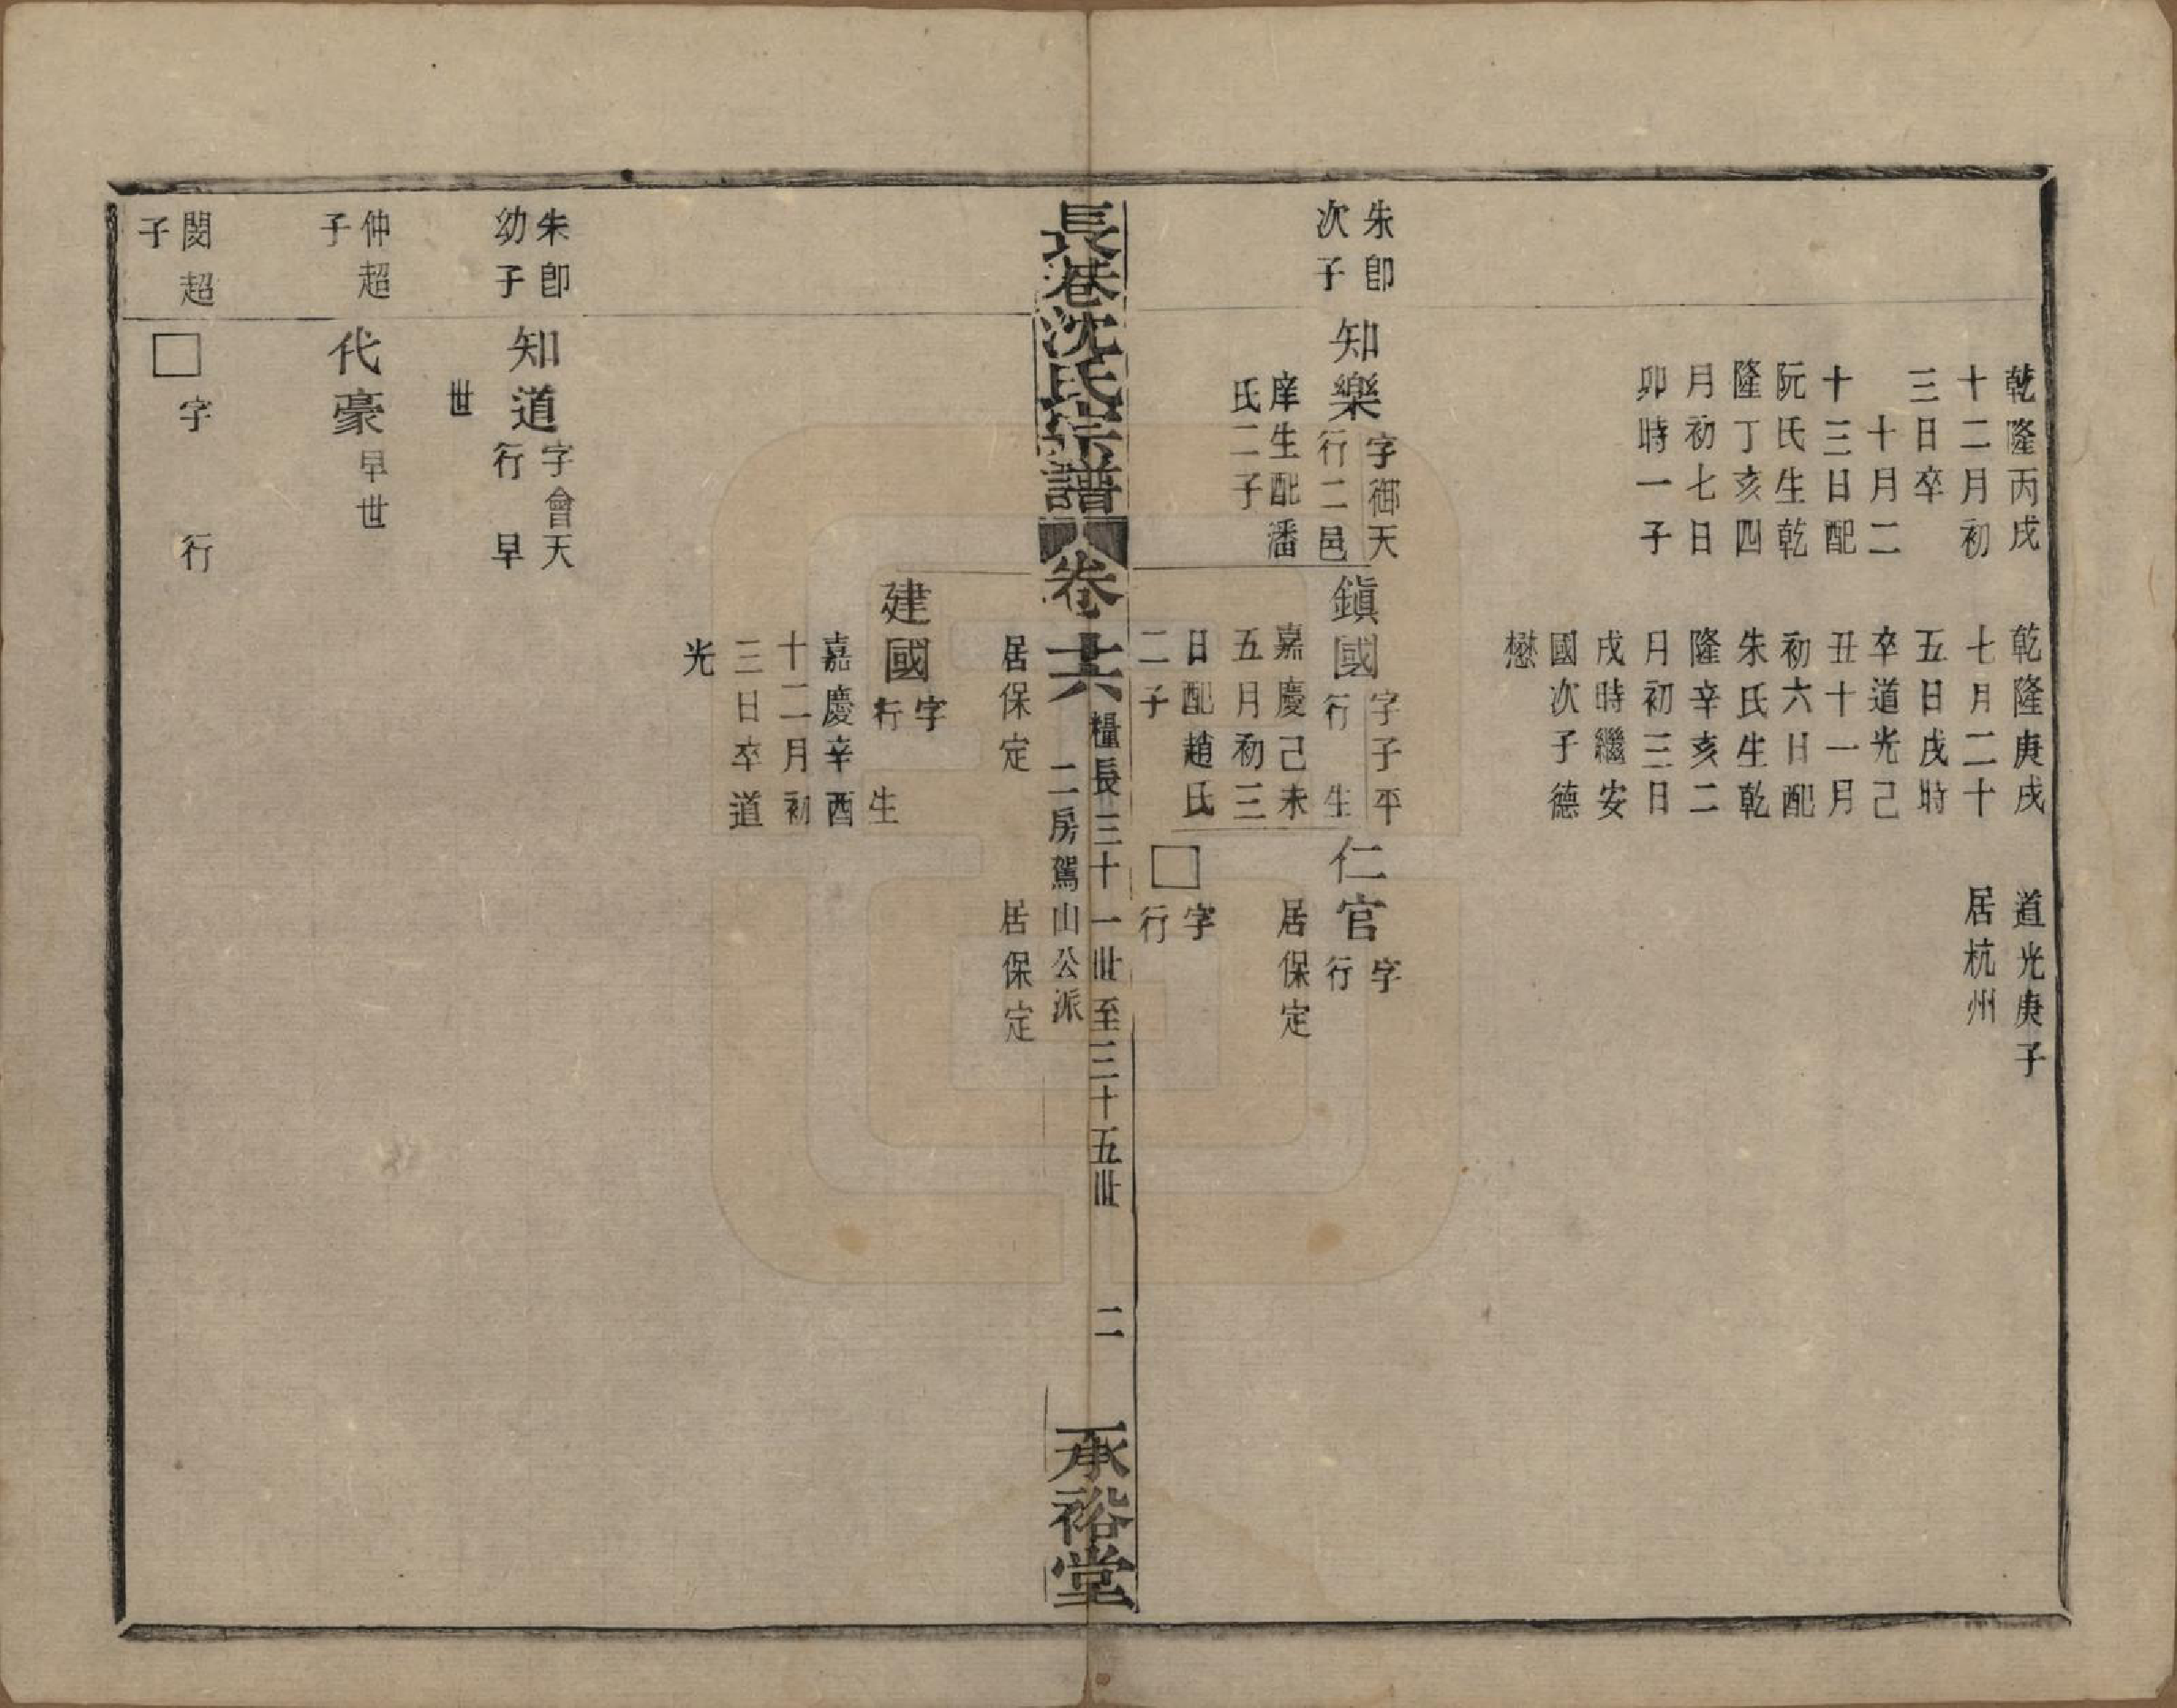 乾隆丙戌
十二月初
三日卒
十月二
十三日配
阮氏生乾
隆丁亥四
月初七日
卯時一子
乾隆庚戌
七月二十
五日戌時
卒道光己
丑十一月
初六日配
朱氏生乾
隆辛亥二
月初三日
戌時繼安
國次子德
懋
道光庚子
居杭州
朱卽
次子
知樂
字御天
行二邑
庠生配潘
氏二子
鎭國
字子平
行 生
嘉慶己未
五月初三
日配趙氏
二子
仁官
字
行
居保定
□
字
行
長巷沈氏宗譜
卷十六
糧長三十一世至三十五世
二房駕山公派
二
承裕堂
居保定
居保定
建國
字
行 生
嘉慶辛酉
十二月初
三日卒道
光
朱卽
幼子
知道
字會天
行 早
世
仲超
子
代豪
早世
閔超
子
□
字
行